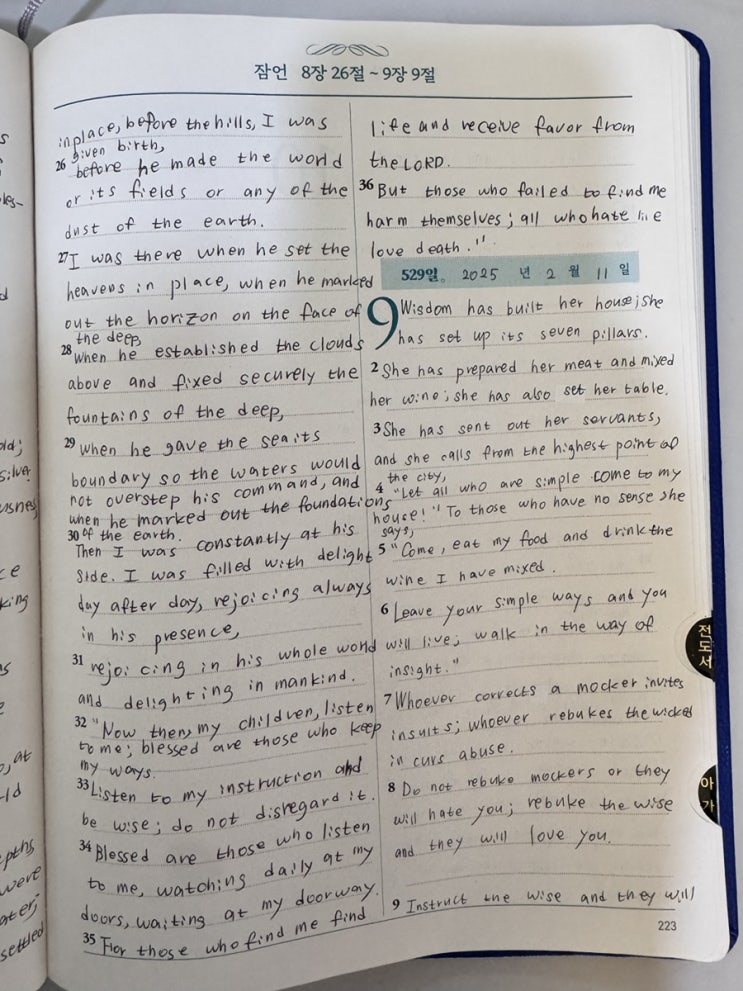 잠언 8장 26절 ~ 9장 9절
in place, before the hills, I was
given birth,
26 before he made the world
or its fields or any of the
dust of the earth.
27 I was there when he set the
heavens in place, when he marked
out the horizon on the face of
the deep,
28 when he established the clouds
above and fixed securely the
fountains of the deep,
29 when he gave the sea its
boundary so the waters would
not overstep his command, and
when he marked out the foundations
of the earth.
30 Then I was constantly at his
side. I was filled with delight
day after day, rejoicing always
in his presence,
31 rejoicing in his whole world
and delighting in mankind.
32 "Now then, my children, listen
to me; blessed are those who keep
my ways.
33 Listen to my instruction and
be wise; do not disregard it.
34 Blessed are those who listen
to me, watching daily at my
doors, waiting at my doorway.
35 For those who find me find
life and receive favor from
the LORD.
36 But those who failed to find me
harm themselves; all who hate me
love death."
529일。 2025 년 2 월 11 일
9 Wisdom has built her house; she
has set up its seven pillars.
2 She has prepared her meat and mixed
her wine; she has also set her table.
3 She has sent out her servants,
and she calls from the highest point of
the city,
4 "Let all who are simple come to my
house!" To those who have no sense she
says,
5 "Come, eat my food and drink the
wine I have mixed.
6 Leave your simple ways and you
will live; walk in the way of
insight."
7 Whoever corrects a mocker invites
insults; whoever rebukes the wicked
incurs abuse.
8 Do not rebuke mockers or they
will hate you; rebuke the wise
and they will love you.
9 Instruct the wise and they will
223
전도서
아가